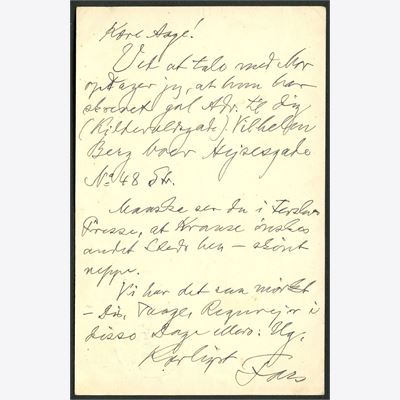 Kære Aage!
Ved at tale med Mor
opdager jeg, at hun har
skrevet gal Adr. til dig
Vilhelm
Berg boer Hejsesgade
No 48 Str.
Maaske ser du i
Presse, at Krause ønskes
andet Steds hen – skønt
neppe.
Vi har det saa mørkt
– Dis, Taage, Regnvejr i
disse Dage
Kærligst Far